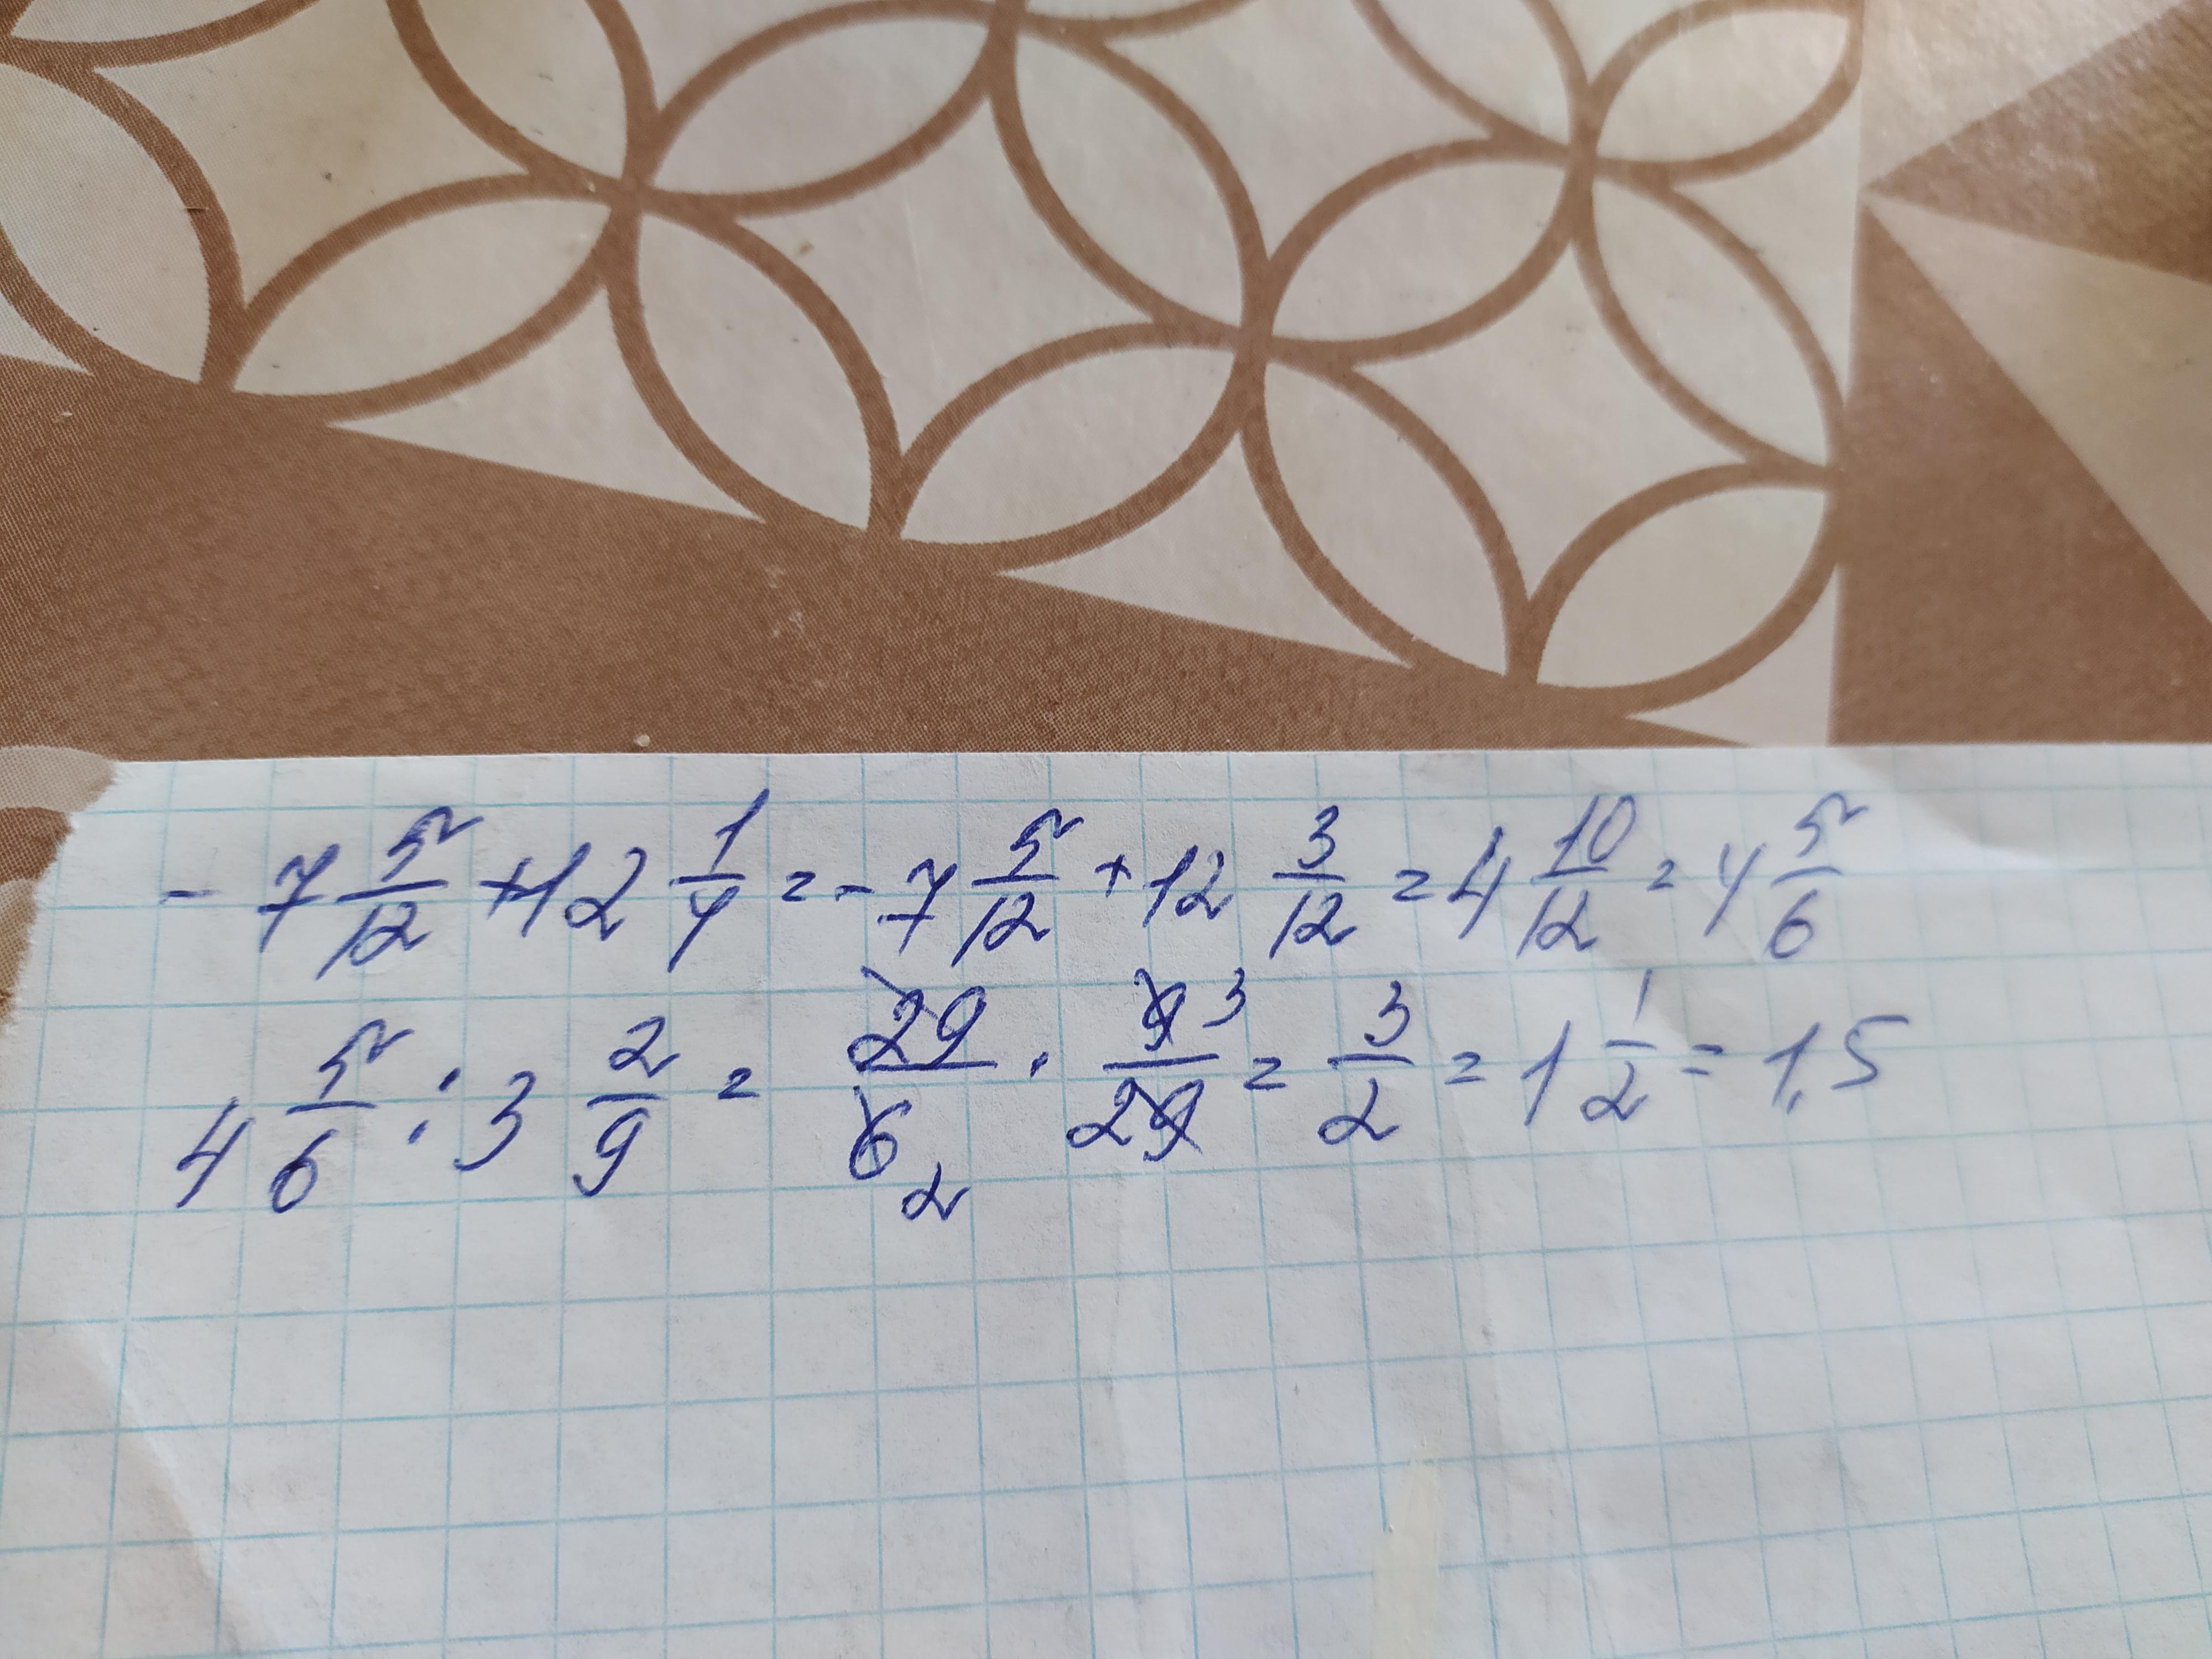 - 7 5/12 + 12 1/4 = - 7 5/12 + 12 3/12 = 4 10/12 = 4 5/6
4 5/6 : 3 2/9 = 29/6 2 · 9 3/29 = 3/2 = 1 1/2 = 1,5